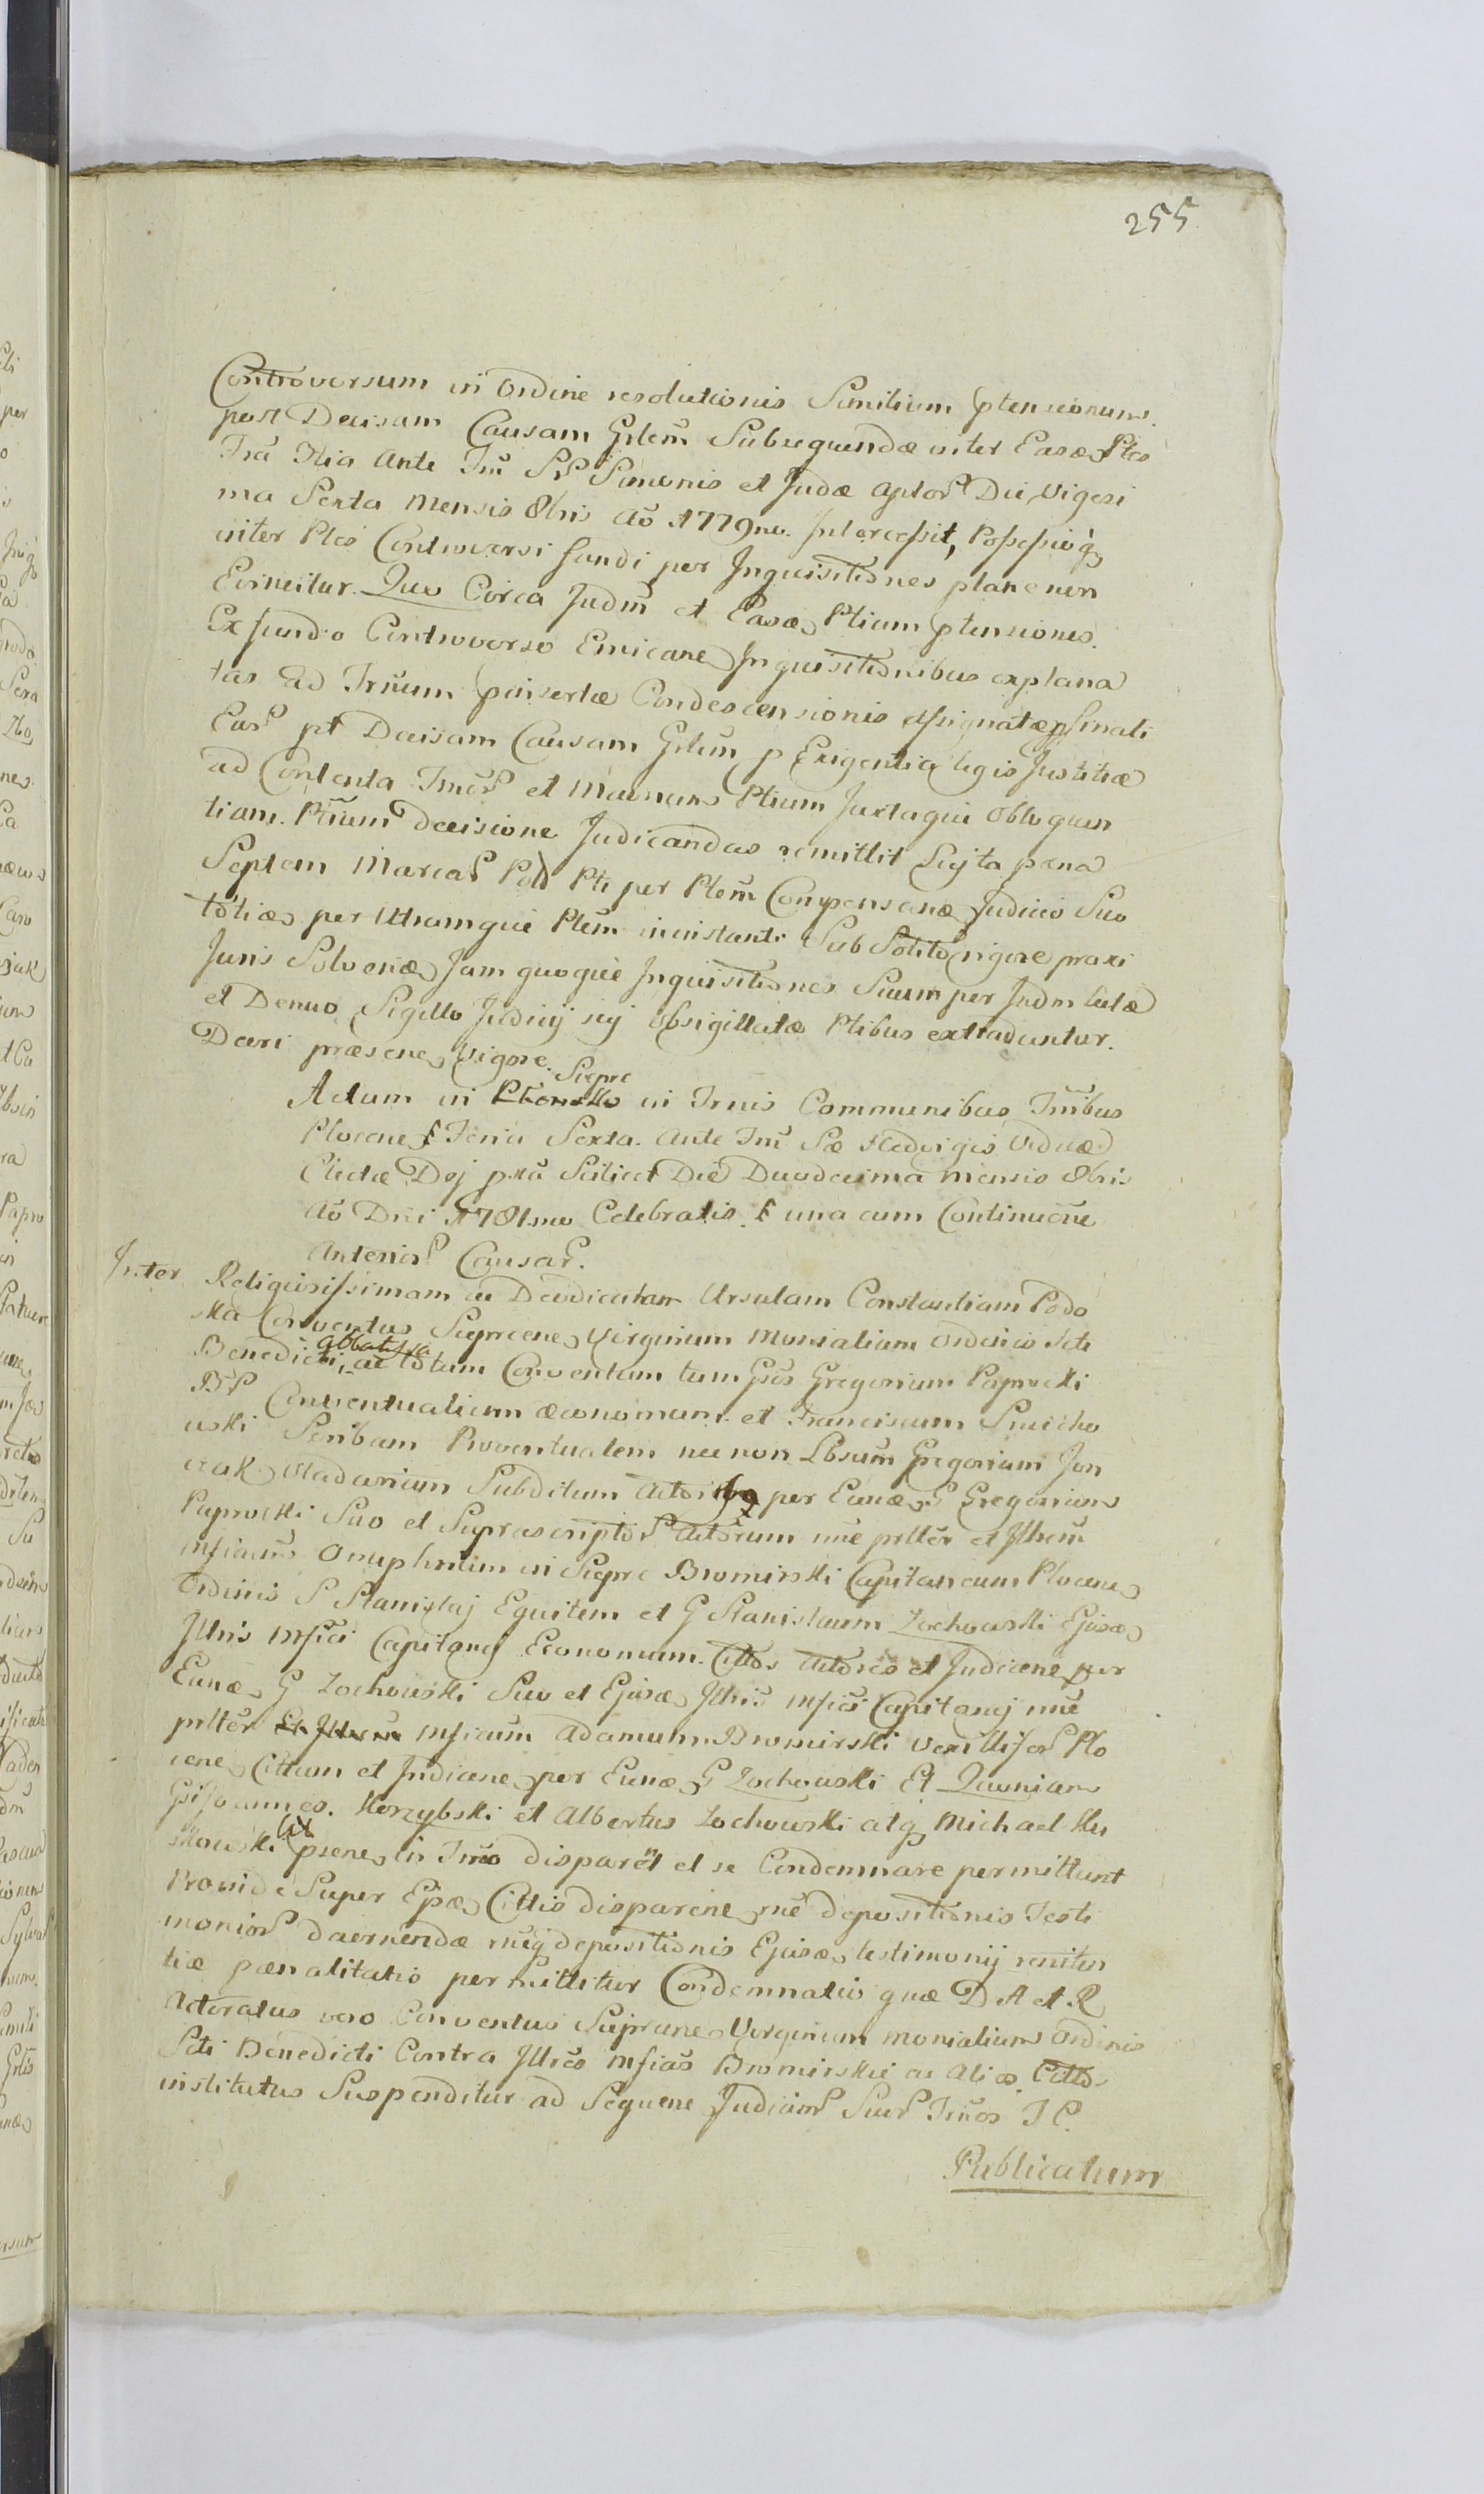 255
Controversum in Ordine resolutionis Similium ptensionum
post Decisam Causam Grlem Subsequendæ inter Easæ Ptes
Fra Ilia Ante Fm SP Simonis et Judæ Aplor Die Vigesi
ma Sexta Mensis 8bris Ao 1779no. Intercessit, Possessio q
inter Ptes Controversi fundi per Inquisitiones plane non
Evincitur. Quo Circa Judm et Easæ Ptium ptensiones
Ex fundo Controverso Emicare Inquisitionibus explana
tas ad Trnum Condescensionis Assignatæ finali
Ear pt Decisam Causam Grlem p Exigentia legis Justitiæ
ad Contenta et Ptium Juxtaque obloquen
tiam. Ptium decisione Judicandas remittit Scijta pæna
Septem Marcar Pold Pti per Ptem Compensanæ Judicio Suo
totiæ per Utramque Ptem in instanti Sub Solito rigore praxi
Juris Solvenæ Jam quoque Inquisitiones Suum per Judm lectæ
et Denuo Sigillo Judicij sig Obsigillatæ Ptibus extraduntur.
Decri præsene Vigore.
Sieprc
Actum in in Trnis Communibus Trnibus
Plocene Feria Sexta. Ante Fm Sæ Hedvigis Viduæ
Electæ Dej pxa Scilicet Die Duodecima Mensis 8bris
Ao Dni 1781mo Celebratis. una cum Continuone
Anterior Causar.
Inter Religiosissimam ac Deodicatam Ursulam Constantiam Podo
ska Conventus Sieprcene Virginum Monialium Ordinis Scti
Abbatissa
Benedicti, ac totum Conventum tum Gsos Gregorium Paprocki
Conventualium œconomum. et Franciscum Smiecho
wski Scribam Proventualem nec non Lbsum Gregorium Jon
czak Vladarium Subditum per Eunæ G Gregorium
Paprocki Suo et Suprascriptor Actorum nne prltér et Illrem
Mficum Onuphrium in Sieprc Bromirski Capitaneum Plocene
Ordinis S Stanislaj Equitem et G Stanislaum Zochowski Ejusæ
Illris Mfici Capitanej Economum. Cittos Actores et Judicene per
Eunæ G Zochowski Suo et Ejusæ Illris Mfici Capitanej nne
prltér Mficum Adamum Bromirski Vexillifer Plo
cene Cittum et Judicene per Eunæ G Zochowski Et Quoniam
Gsi Joannes. Korzybski et Albertus Zochowski atq Michael Ku
ut
skowski psene in Trno disparet et se Condemnare permittunt
Proinde Super Ejsæ Cittis disparene nne depositionis Testi
monior decernendæ nneq depositionis Ejusæ testimonij reniten
tiæ pænalitatis permittitur Condemnatio quæ D A et R
Actoratus vero Conventus Sieprcene Virginum Monialium Ordinis
Scti Benedicti Contra Illres Mficos Bromirskie ac Alios Cittos
institutus Suspenditur ad Sequene Judicior Suor Trnos J P.
Publicatum